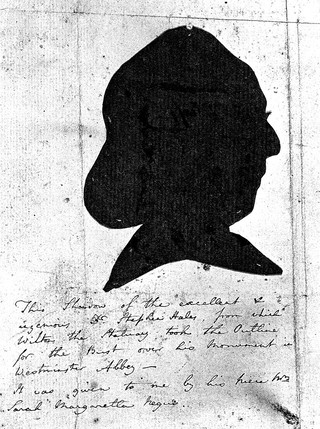 This Shadow of the excellent &
ingenious Dr Stephen Hales from which
Wilton the Statuary took the Outline
for the Bust over his Monument in
Westminster Abbey —
It was given to me by his niece Mrs
Sarah Margaretta